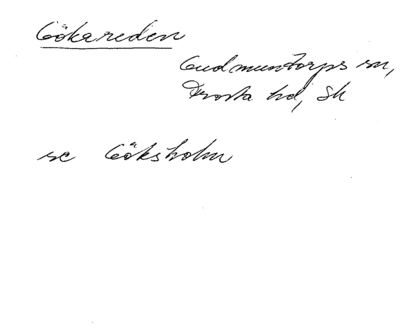 Gökareden
Gudmuntorps sn,
Frosta hd, Sk
se Göksholm